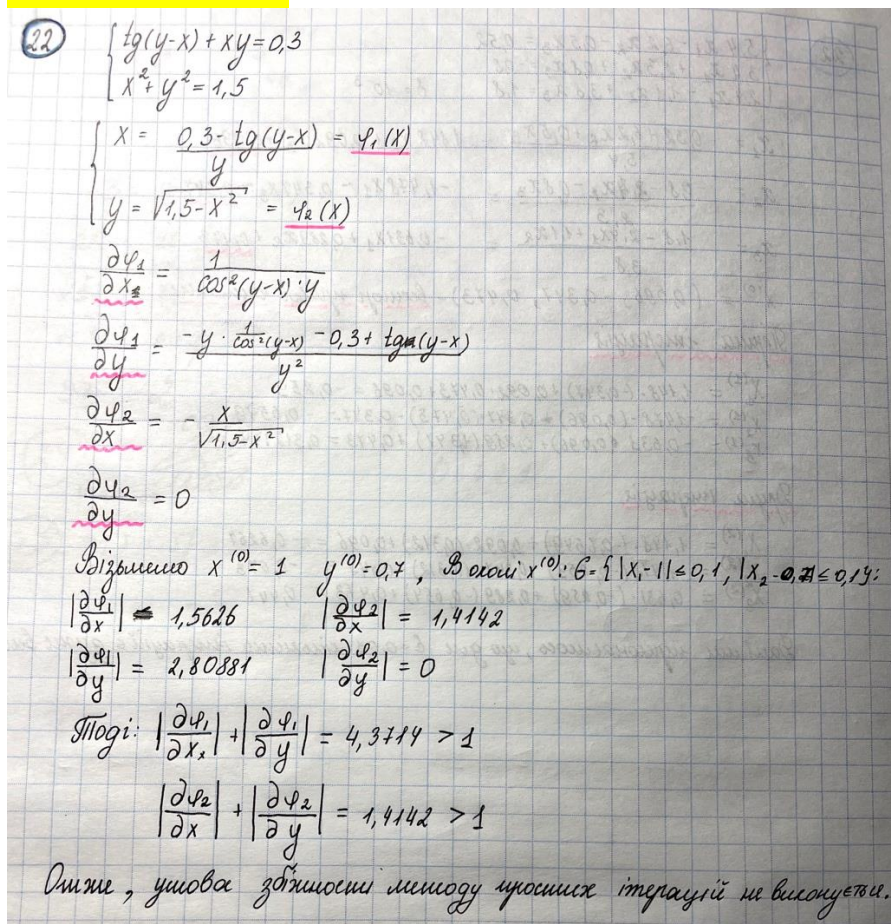 22
{ tg(y-x) + xy = 0,3
x² + y² = 1,5
{ x = (0,3 - tg(y-x)) / y = φ₁(x)
y = √(1,5 - x²) = φ₂(x)
∂φ₁/∂x₁ = 1 / (cos²(y-x) · y)
∂φ₁/∂y = (-y · 1/cos²(y-x) - 0,3 + tg(y-x)) / y²
∂φ₂/∂x = - x / √(1,5 - x²)
∂φ₂/∂y = 0
Візьмемо x⁽⁰⁾ = 1 y⁽⁰⁾ = 0,7, В околі x⁽⁰⁾: G = { |x₁ - 1| ≤ 0,1, |x₂ - 0,7| ≤ 0,1}:
|∂φ₁/∂x| = 1,5626 |∂φ₂/∂x| = 1,4142
|∂φ₁/∂y| = 2,80881 |∂φ₂/∂y| = 0
Тоді: |∂φ₁/∂x| + |∂φ₁/∂y| = 4,3714 > 1
|∂φ₂/∂x| + |∂φ₂/∂y| = 1,4142 > 1
Отже, умова збіжності методу простих ітерацій не виконується.